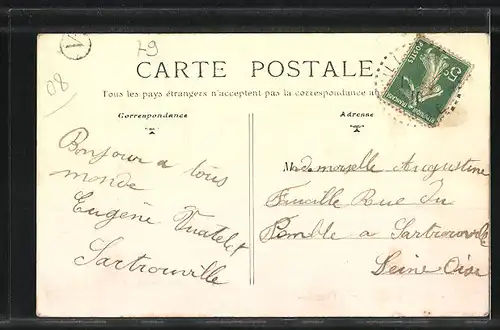 79
08
CARTE POSTALE
Tous les pays étrangers n'acceptent pas la correspondance au
Correspondance
Adresse
Bonjour a tous
monde
Eugène
Sartrouville
Mademoiselle Augustine
Rue du
a Sartrouville
Seine Oise
POSTES
5c